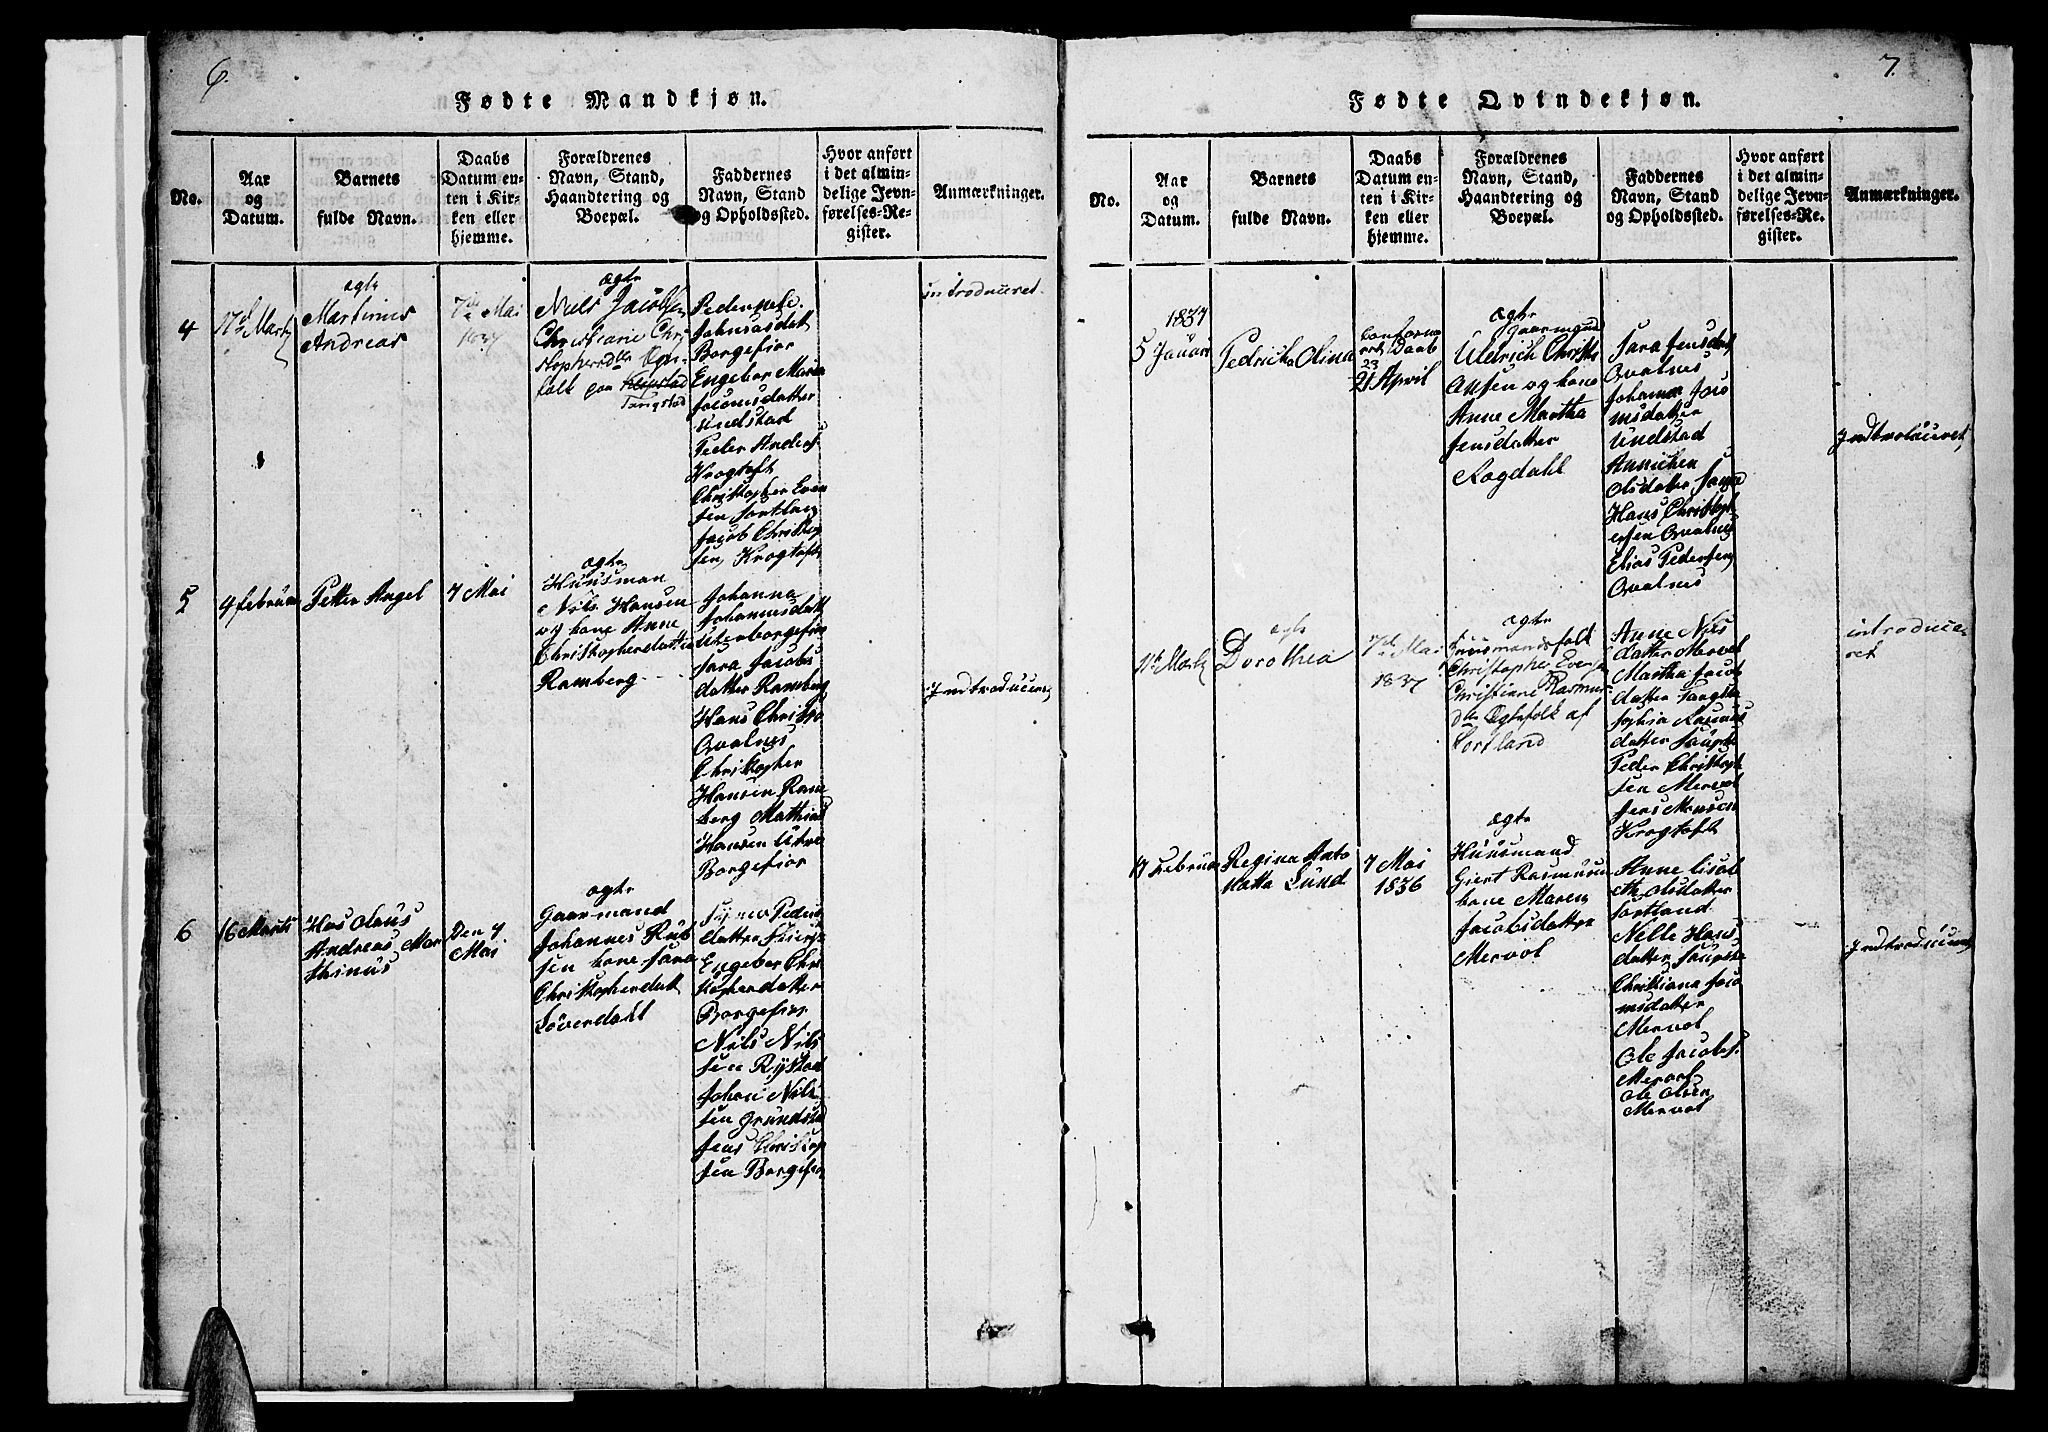 6.
Fødte Mandkjøn.
No.
Aar
og
Datum.
Barnets
fulde Navn.
Daabs
Datum en-
ten i Kir-
ken eller
hjemme.
Forældrenes
Navn, Stand,
Haandtering og
Boepæl.
Faddernes
Navn, Stand
og Opholdssted.
Hvor anført
i det almin-
delige Jevn-
førelses-Re-
gister.
Anmærkninger.
4
17de Marts
ægte
Martinus
Andreas
7de Mai
1837
ægte
Niels Jacobsen
Christiane Chri
stophersdtr Egte
folk paa
Tangstad
Johnasdatt
Borgefior
Engebor Maria
Jaconisdatter
Undstad
Peder Anders
Krogtoft
Christopher Even
sen Sortland
Jacob Christop
sen Krogtoft
introduceret
5
4 februar
Petter Angel
7 Mai
ægte
Huusman
Nils Hansen
og kone Anne
Christopherdatter
Ramberg
Johanna
Johannisdatt
Uttenborgefior
Sara Jacobs
datter Ramberg
Hans Christop
Qvalnes
Christopher
Hansen Ram
berg Mathias
Hansen Uttre
Borgefior
Indtroducere
6
16 Marti
Hans Olaus
Andreas Mar
thinus
Den 7
Mai
ægte
Gaarmand
Johannes Rub
sen kone Sara
Christopherdatt
Löverdahl
Peders
datter
Engebor Chri
stopherdatter
Borgefior
Nils Nils
sen Rystad
Johan Nils
sen Grundstad
Jens Christop
sen Borgefior
7.
Fødte Qvindekjøn.
No.
Aar
og
Datum.
Barnets
fulde Navn.
Daabs
Datum en-
ten i Kir-
ken eller
hjemme.
Forældrenes
Navn, Stand,
Haandtering og
Boepæl.
Faddernes
Navn, Stand
og Opholdssted.
Hvor anført
i det almin-
delige Jevn-
førelses-Re-
gister.
Anmærkninger.
1837
5 Januar
Pedricha Olina
Confirme
ret Daab
23
21 April
ægte
gaarmand
Uldrich Christi
ansen og kone
Anne Martha
Jensdatter
Rogdahl
Sara Jensdatt
Qvalnes
Johanna Jaco
nisdatter
Undstad
Annichen
Olsdatter
Hans Christoph
ersen Qvalnes
Elias Pedersen
Qvalnes
Indtroduceret
11te Marts
ægte
Dorothea
7de Mai
1837
ægte
Huusmandsfolk
Christopher Evensen
Christianne Rasmus
dtr Ægtefolk af
Sortland
Anne Nils
datter Mervol
Martha Jacob
datter Tangsta
Sophia Rasmus
datter
Peder Christoph
sen Mervol
Jens Monsen
Krogtoft
introduce
ret
17 Februar
Regina Anto
natta Lund
7 Mai
1836
ægte
Huusmand
Giert Rasmusen
kone Maren
Jacobsdatter
Mervol
Anne Lisab
eth Olsdatter
Sortland
Nelle Hans
datter
Christiana Jaco
nisdatter
Mervol
Ole Jacobs.
Mervol
Ole Olsen
Mervol
Indtroducere